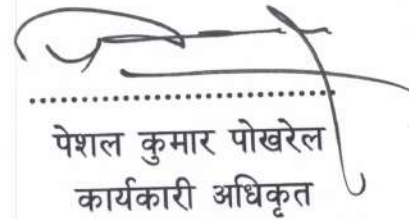 पेशल कुमार पोखरेल
कार्यकारी अधिकृत